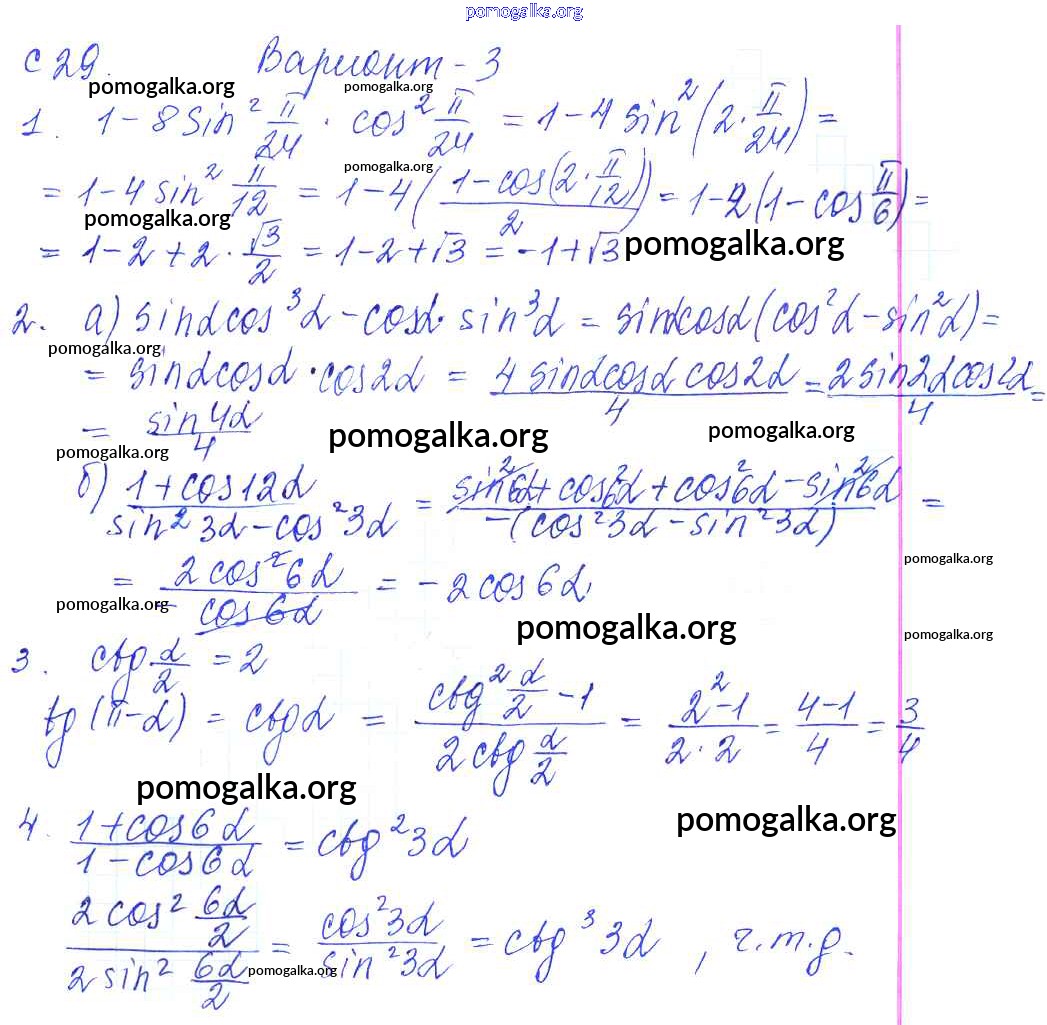 pomogalka.org
С 29. Вариант - 3
pomogalka.org pomogalka.org
1. 1 - 8 sin² π/24 · cos² π/24 = 1 - 4 sin² (2 · π/24) =
pomogalka.org
= 1 - 4 sin² π/12 = 1 - 4 ( (1 - cos(2 · π/12)) / 2 ) = 1 - 2 (1 - cos π/6) =
pomogalka.org
= 1 - 2 + 2 · √3/2 = 1 - 2 + √3 = -1 + √3
pomogalka.org
2. а) sinα cos³α - cosα · sin³α = sinα cosα (cos²α - sin²α) =
pomogalka.org
= sinα cosα · cos2α = (4 sinα cosα cos2α) / 4 = (2 sin2α cos2α) / 4 =
= sin4α / 4
pomogalka.org pomogalka.org pomogalka.org
б) (1 + cos12α) / (sin²3α - cos²3α) = (sin²6α + cos²6α + cos²6α - sin²6α) / (-(cos²3α - sin²3α)) =
pomogalka.org
= (2 cos²6α) / (-cos6α) = -2 cos6α
pomogalka.org pomogalka.org pomogalka.org
3. ctg α/2 = 2
tg (π - α) = ctgα = (ctg² α/2 - 1) / (2 ctg α/2) = (2² - 1) / (2 · 2) = (4 - 1) / 4 = 3/4
pomogalka.org pomogalka.org
4. (1 + cos6α) / (1 - cos6α) = ctg²3α
(2 cos² 6α/2) / (2 sin² 6α/2) = cos²3α / sin²3α = ctg³ 3α, ч.т.д.
pomogalka.org